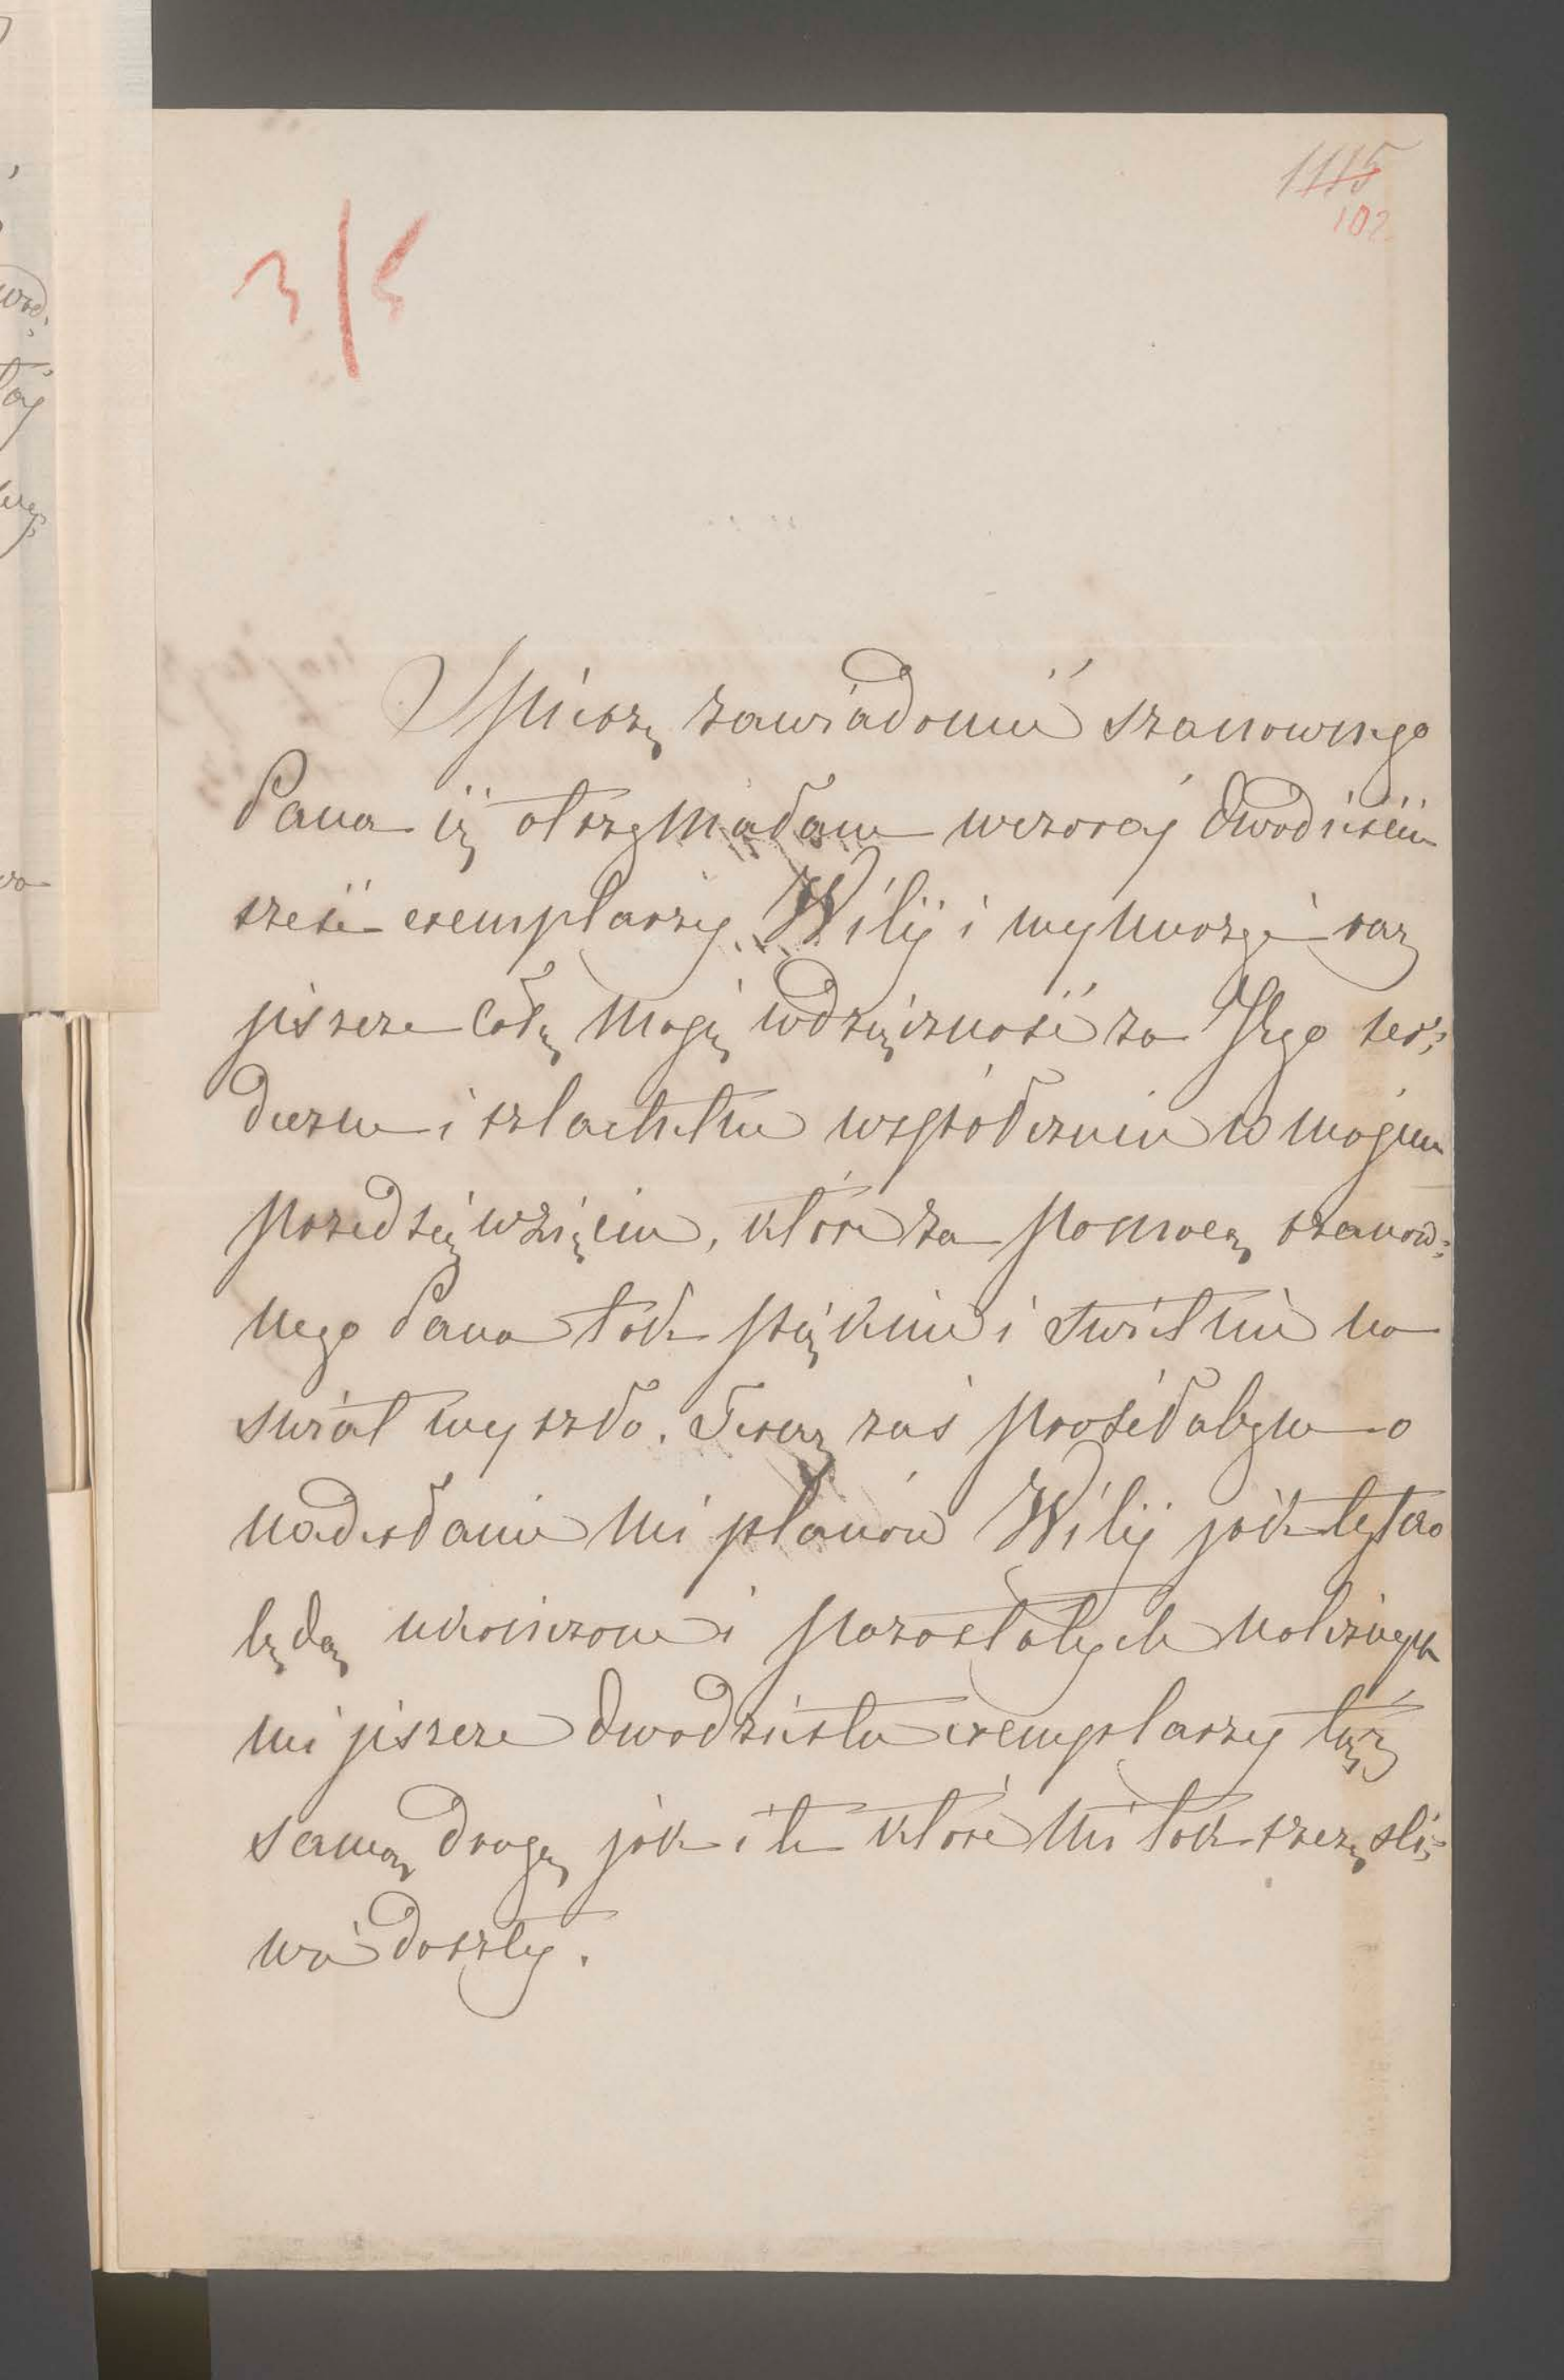 1115
102
3/5
Spieszę zawiadomić szanownego
Pana iż otrzymałam wczoraj dwadzieścia
sześć exemplarzy Wilij i wynurzyć raz
jeszcze całą moją wdzięczność za Jego ser=
deczne i szlachetne współczucie w mojem
przedsięwzięciu, które za pomocą szanow=
nego Pana tak pięknie i świetnie na
świat wyszło. Teraz zaś prosiłabym o
nadesłanie mi planów Wilij jak tylko
będą ukończone i pozostałych należnych
mi jeszcze dwadzieścia exemplarzy tąż
samą drogą jak i te które mi tak szczęśli=
wie doszły.